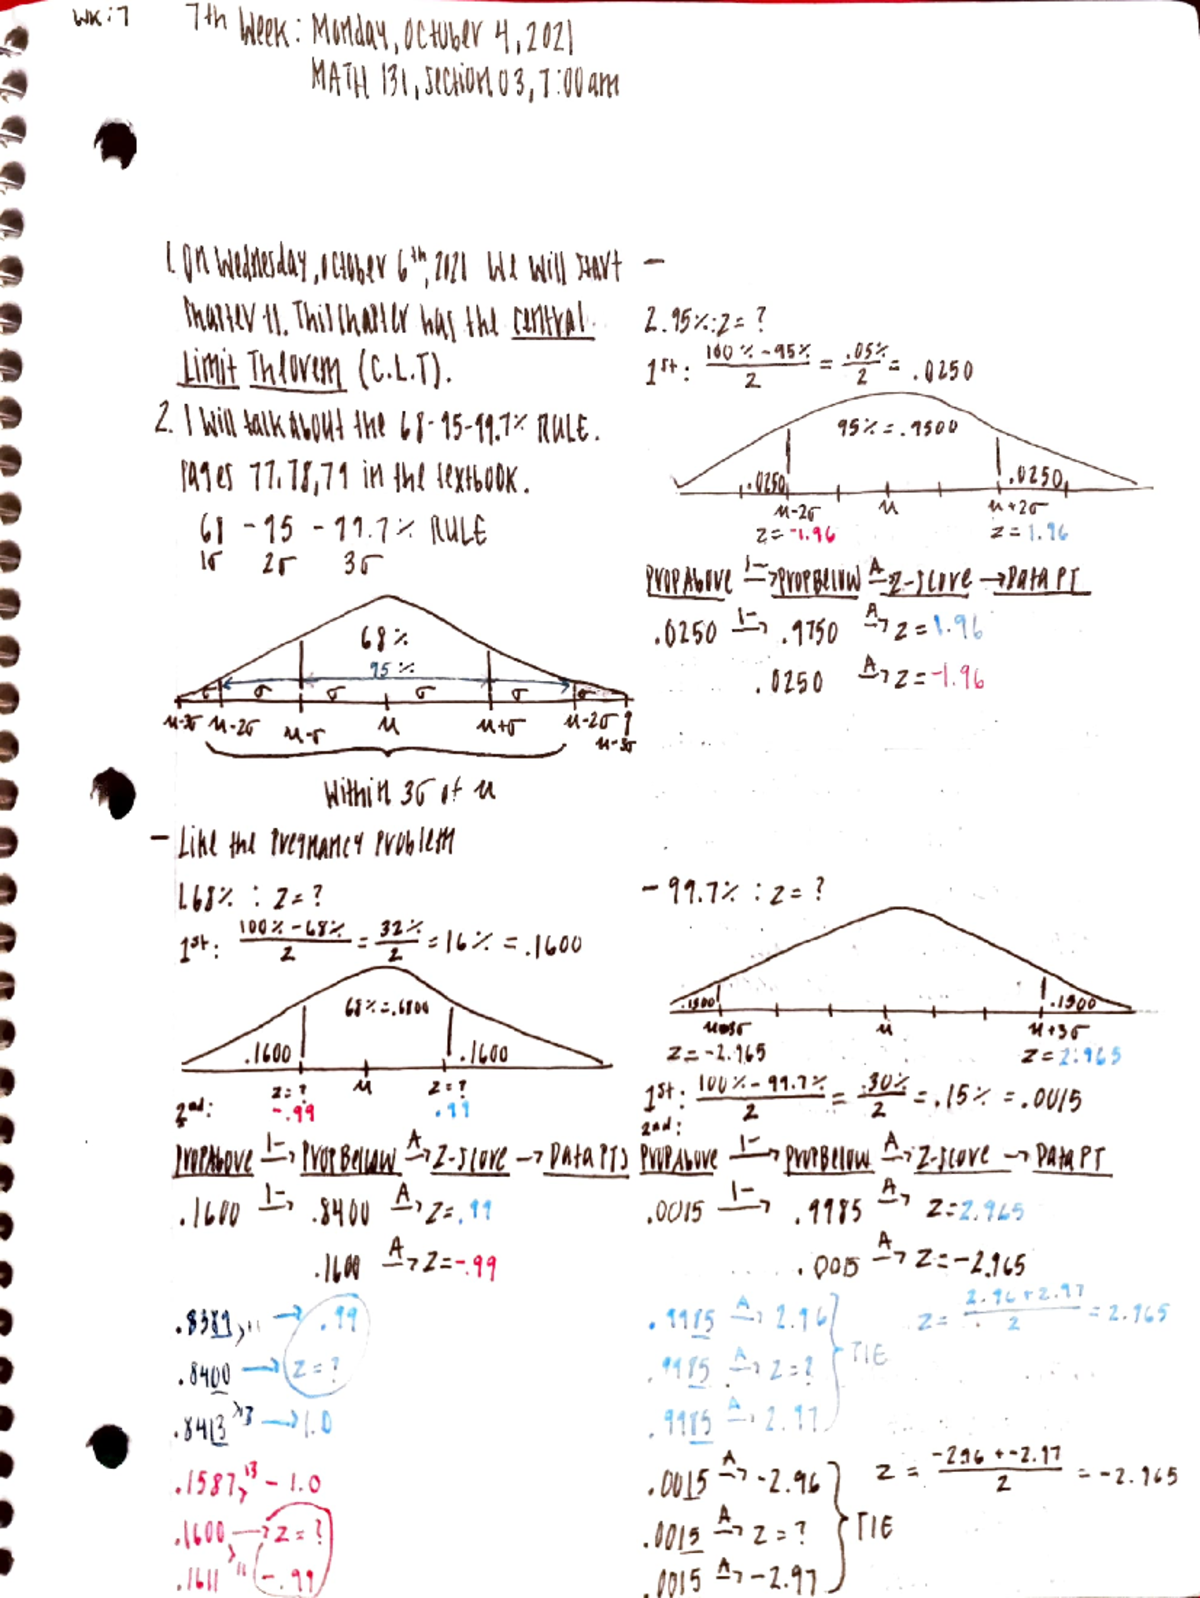 WK:7
7th Week: Monday, October 4, 2021
MATH 131, Section 03, 7:00am
1. On Wednesday, October 6th, 2021 We Will Start
Chapter 11. This Chapter has the central
Limit Theorem (C.L.T).
2. I Will talk About the 68-95-99.7% RULE.
Pages 77, 78, 79 in the textbook.
68 - 95 - 99.7% RULE
1σ 2σ 3σ
68%
95%
σ σ σ σ σ σ
μ-3σ μ-2σ μ-σ μ μ+σ μ-2σ μ-3σ
Within 3σ of μ
- Like the Pregnancy Problem
1. 68% : Z = ?
1st: 100% - 68% / 2 = 32% / 2 = 16% = .1600
68% = .6800
.1600 .1600
Z = ? μ Z = ?
-.99 .99
2nd:
PropAbove 1-→ PropBellow A→ Z-Score → Data PTS
.1600 1-→ .8400 A→ Z = .99
.1600 A→ Z = -.99
.8389 >11 → .99
.8400 → Z = ?
.8413 >13 → 1.0
.1587 >13 - 1.0
.1600 → Z = ?
.1611 >11 -.99
-
2. 95% : Z = ?
1st: 100% - 95% / 2 = .05% / 2 = .0250
95% = .9500
.0250 .0250
μ-2σ μ μ+2σ
Z = -1.96 Z = 1.96
PropAbove 1-→ PropBellow A→ Z-Score → Data PT
.0250 1-→ .9750 A→ Z = 1.96
.0250 A→ Z = -1.96
- 99.7% : Z = ?
.1500 .1500
μ-3σ μ μ+3σ
Z = -2.965 Z = 2.965
1st: 100% - 99.7% / 2 = .30% / 2 = .15% = .0015
2nd:
PropAbove 1-→ PropBelow A→ Z-Score → Data PT
.0015 1-→ .9985 A→ Z = 2.965
.0015 A→ Z = -2.965
.9985 A→ 2.96
.9985 A→ Z = ?
.9985 A→ 2.97
TIE
Z = 2.96 + 2.97 / 2 = 2.965
.0015 A→ -2.96
.0015 A→ Z = ?
.0015 A→ -2.97
TIE
Z = -2.96 + -2.97 / 2 = -2.965